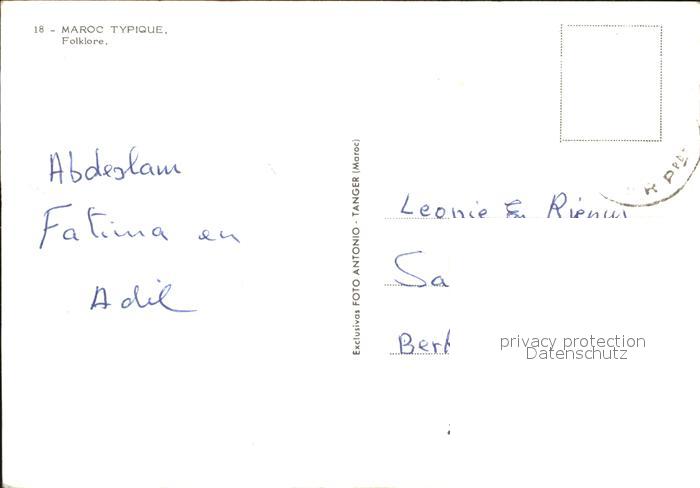 18 - MAROC TYPIQUE.
Folklore.
Abdeslam
Fatima en
Adil
Exclusivas FOTO ANTONIO - TANGER (Maroc)
Leonie En
Sa
Bert
privacy protection
Datenschutz